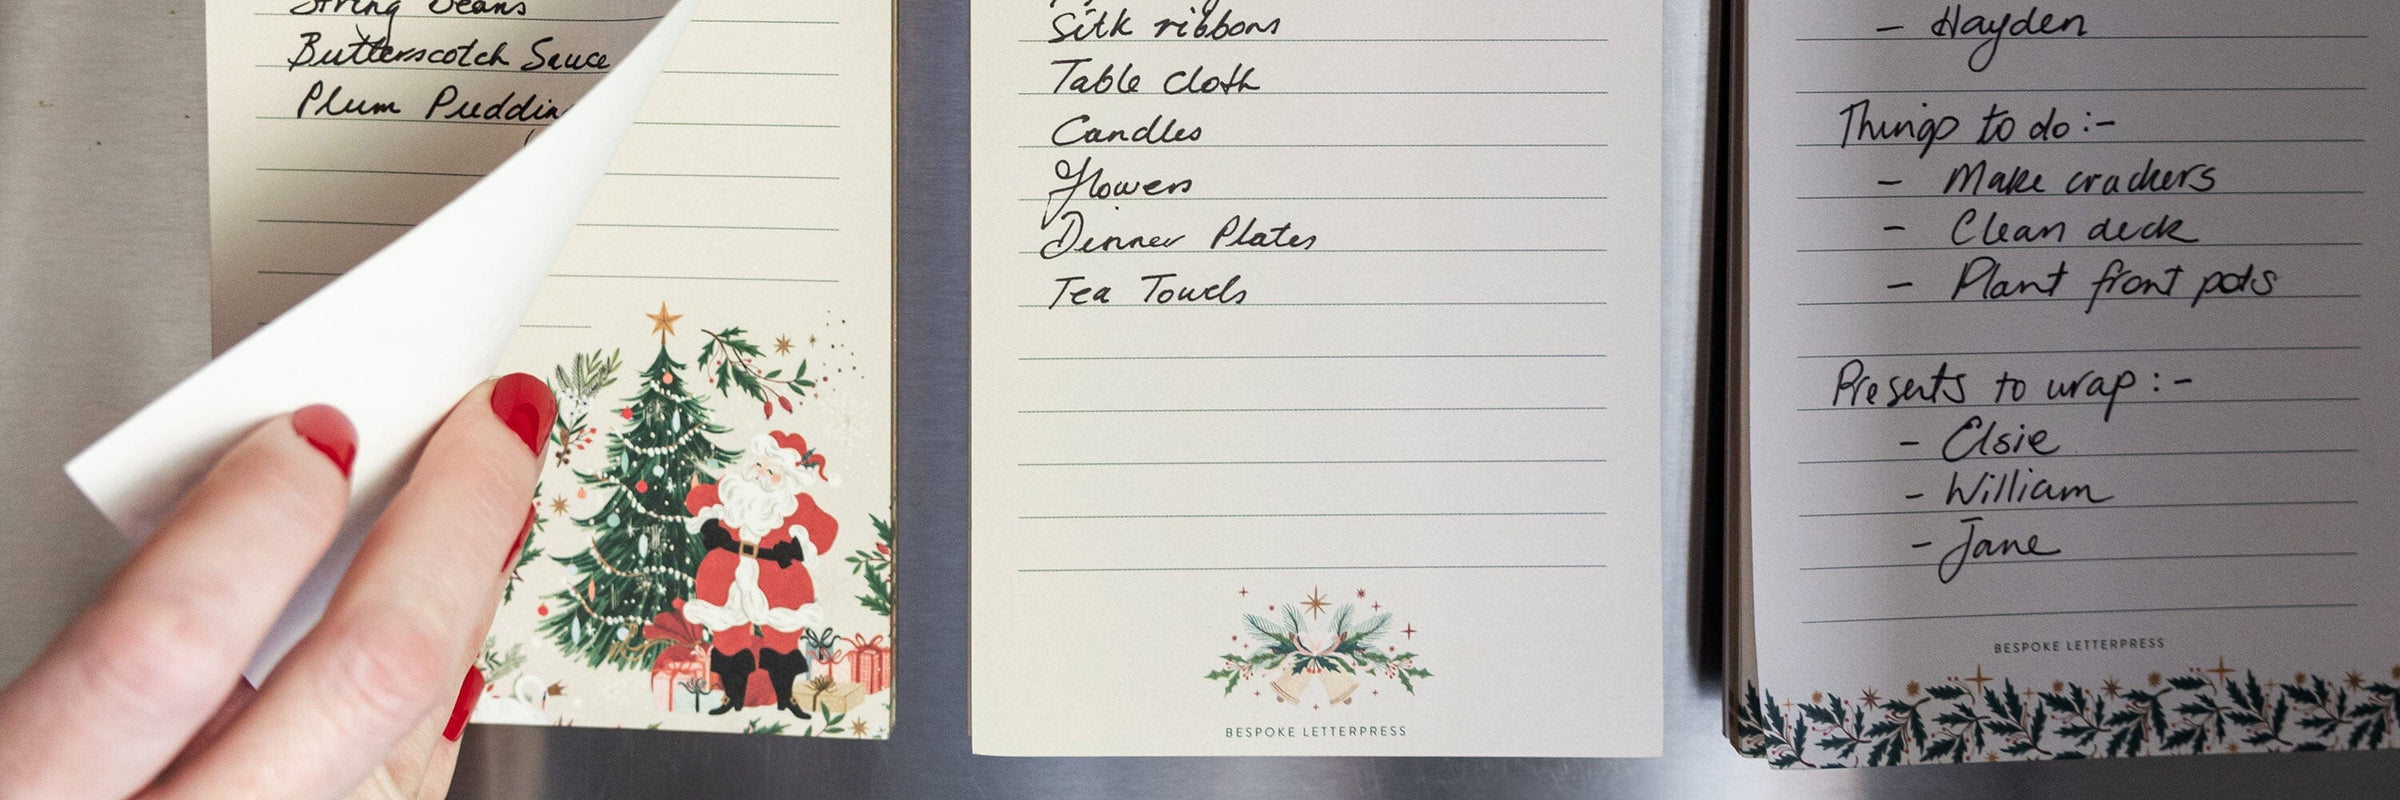 String Beans
Butterscotch Sauce
Plum Puddin
Silk ribbons
Table cloth
Candles
Flowers
Dinner Plates
Tea Towels
BESPOKE LETTERPRESS
- Hayden
Things to do:-
- Make crackers
- Clean deck
- Plant front pots
Presents to wrap:-
- Elsie
- William
- Jane
BESPOKE LETTERPRESS